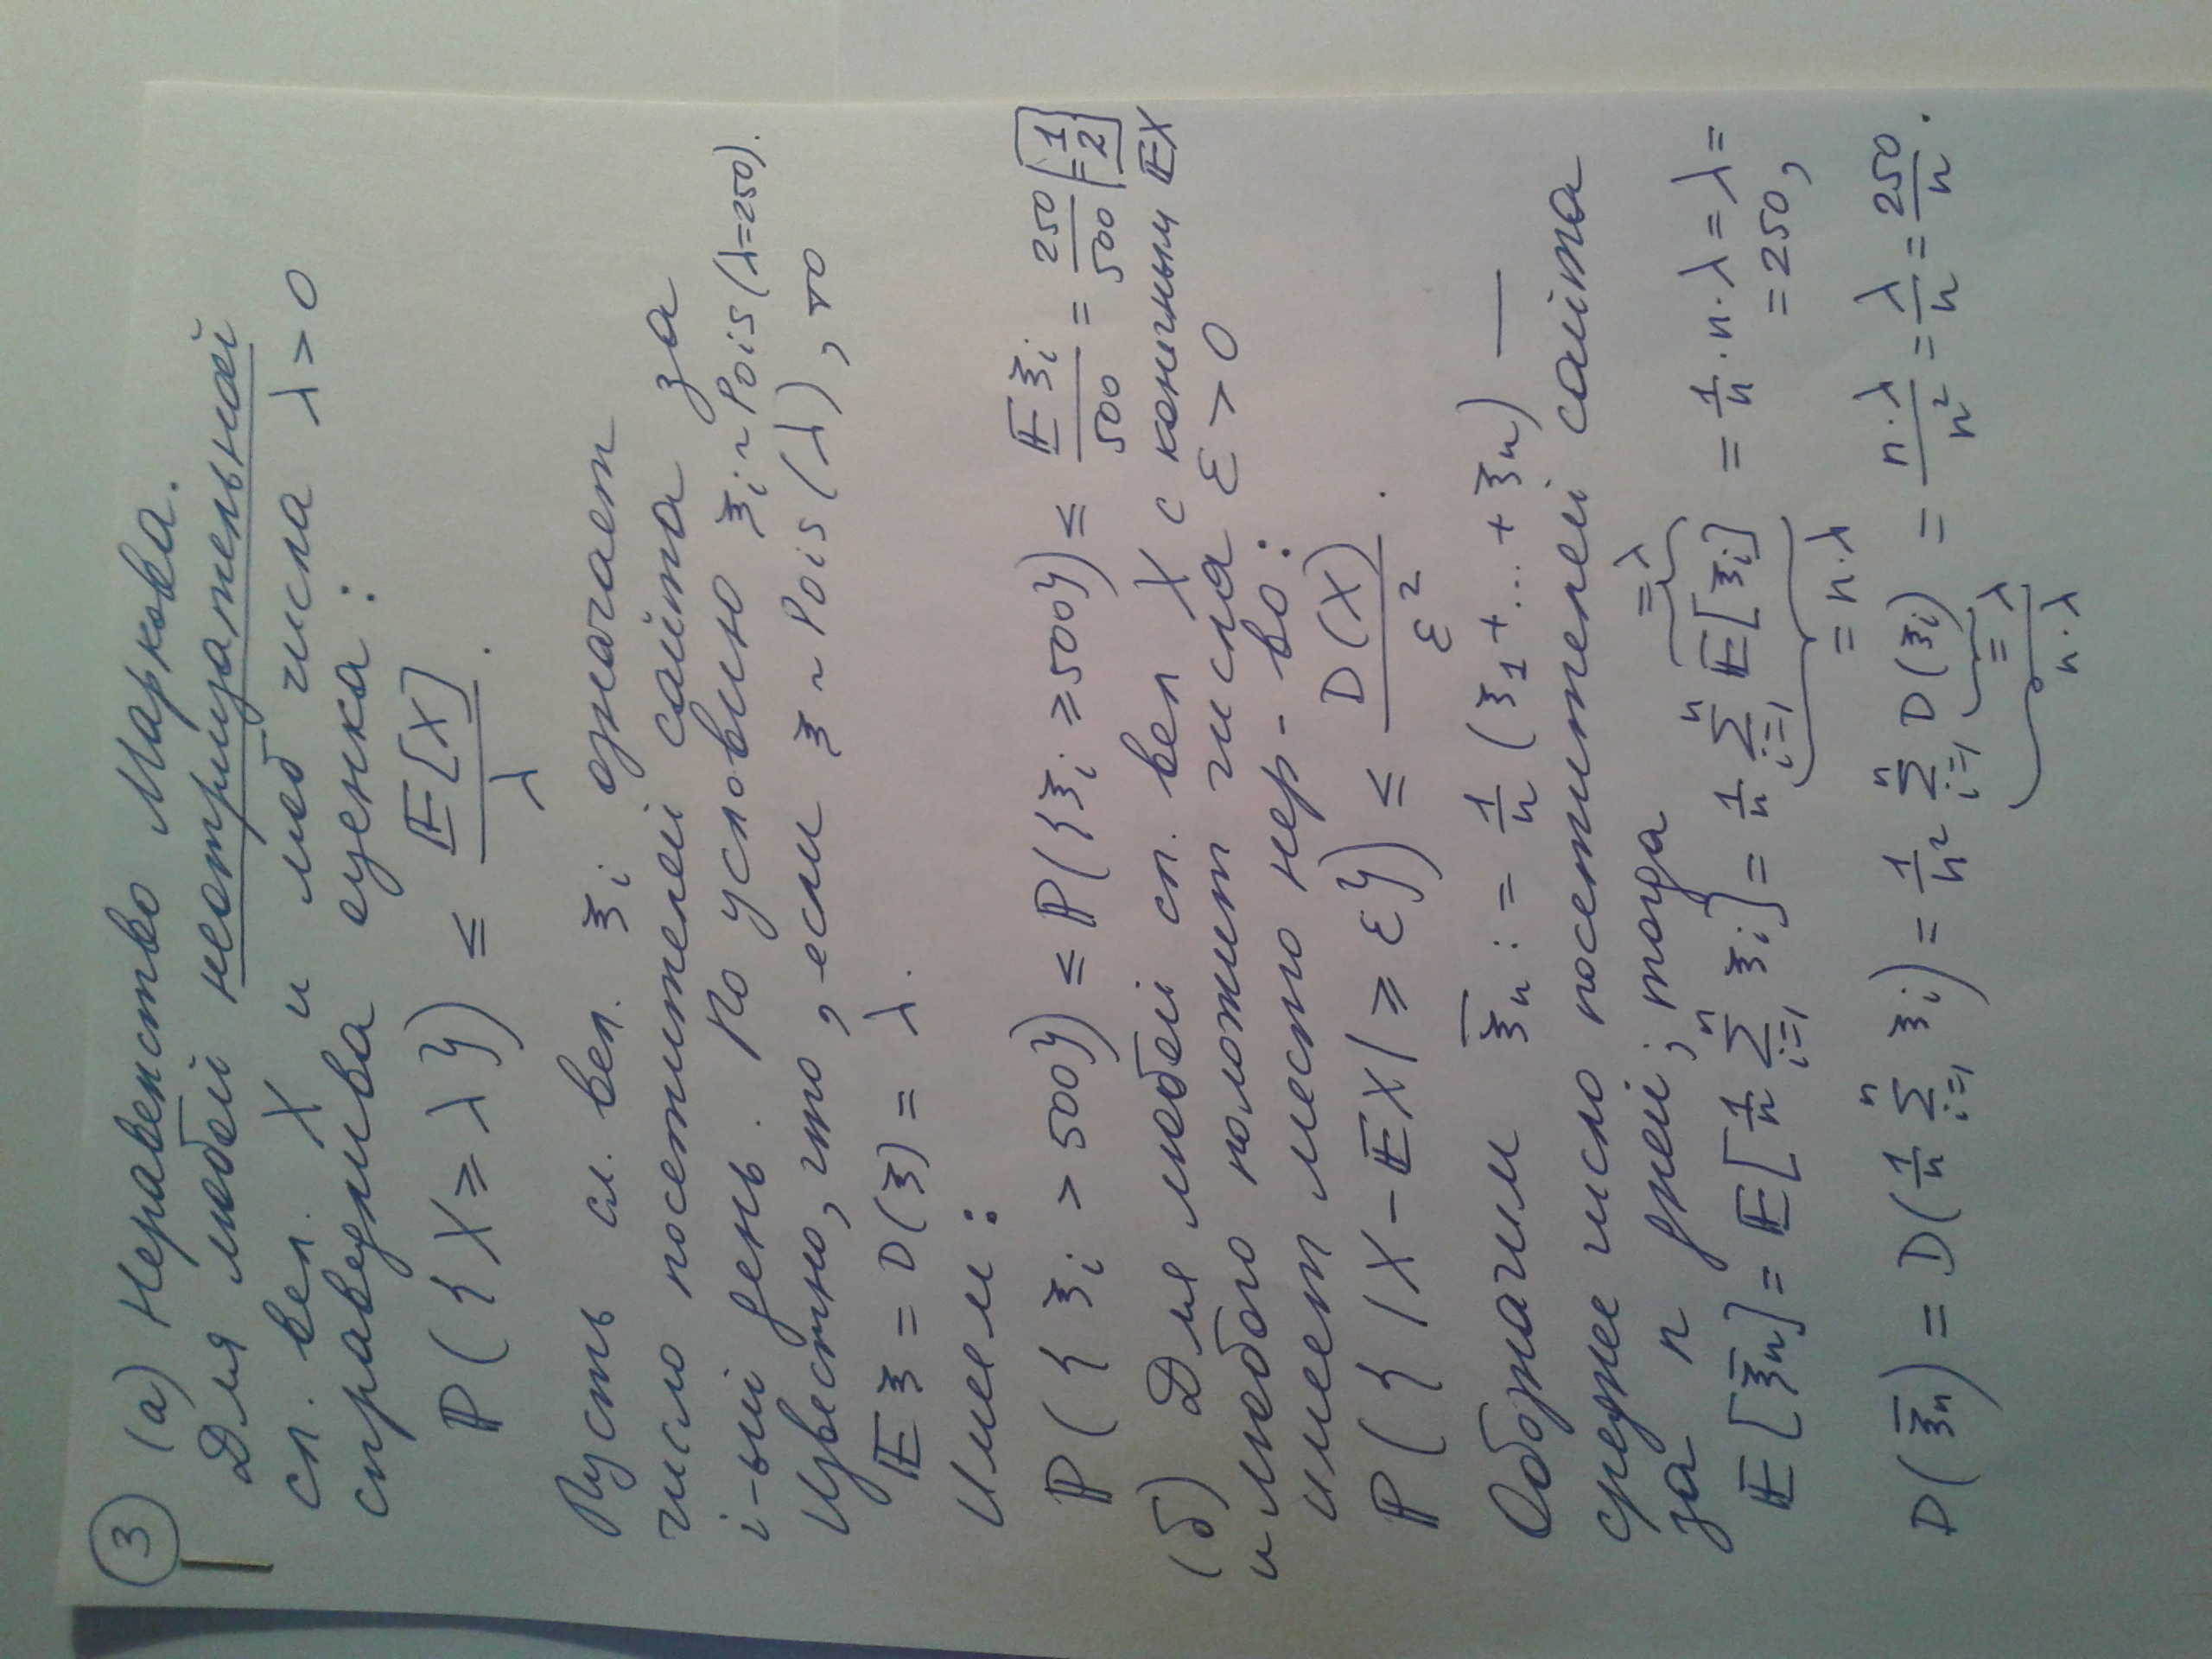 3 (а) Неравенство Маркова.
Для любой неотрицательной
сл. вел. X и люб числа λ > 0
справедлива оценка :
ℙ({X ≥ λ}) ≤ 𝔼[X] / λ.
Пусть сл. вел. ξ_i означает
число посетителей сайта за
i-ый день. По условию ξ_i ~ Pois(λ=250).
Известно, что, если ξ ~ Pois(λ), то
𝔼ξ = D(ξ) = λ.
Имеем :
ℙ({ξ_i > 500}) ≤ ℙ({ξ_i ≥ 500}) ≤ 𝔼ξ_i / 500 = 250 / 500 = 1/2
(б) Для любой сл. вел X с конечным 𝔼X
и любого положит числа ε > 0
имеет место нер-во :
ℙ({|X − 𝔼X| ≥ ε}) ≤ D(X) / ε².
Обозначим ξ̄_n := 1/n (ξ_1 + ... + ξ_n) —
среднее число посетителей сайта
за n дней; тогда
= λ
𝔼[ξ̄_n] = 𝔼[1/n ∑_{i=1}^{n} ξ_i] = 1/n ∑_{i=1}^{n} 𝔼[ξ_i] = 1/n · n · λ = λ =
= 250,
= n·λ
D(ξ̄_n) = D(1/n ∑_{i=1}^{n} ξ_i) = 1/n² ∑_{i=1}^{n} D(ξ_i) = n·λ / n² = λ/n = 250/n.
= λ
n·λ